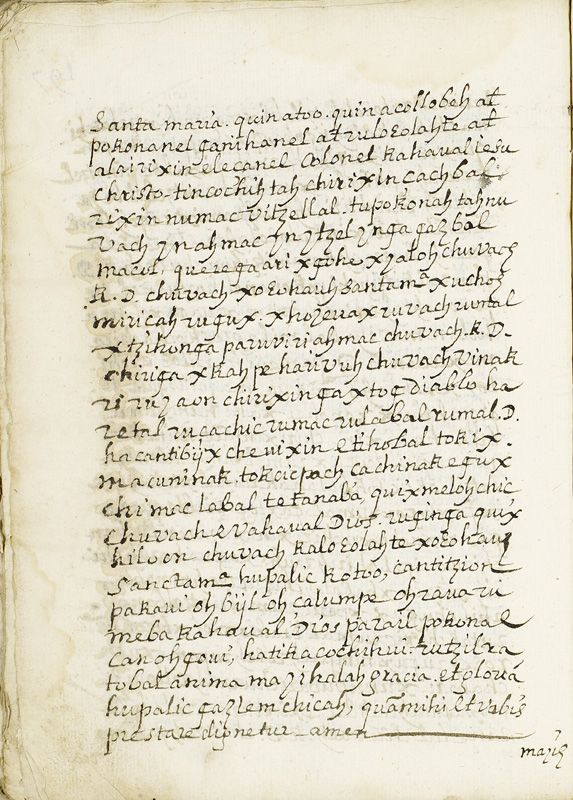 Santa maria. quinatoo. quinacollobeh at
pokonanel ganihanel at ruloEolahte at
alairixin elecanel Colonel kahaval iesu
christo. tincochih tah chirixin cachbal
rixin numac vitzellal. tupokonah tah nu
vach jn ahmac jn jtzel jnga gazbal
macol, querega ari xgohe xjaloh chuvach
k. D. chuvach xoEohauh Santa mª xuchoz
miricah rugux. xhojevax ruvach rumal
xtzihonga paruviri ahmac chuvach. k. D.
chiriga xkah pe harivuh chuvach vinak
ri rujaon chirixin ga xtog diablo ha
retal rucachic rumac rulabal rumal. D.
ha cantibijx chevixin etihobal tokix.
macuninak. tok cicpach cachinak egux
chi mac labal tetanaba, quixmeloh chic
chuvach evahaval Dios. ruginga quix
hiloon chuvach kaloEolahte xoEohauh
Sanctamª hupalic kotoo, cantitzion
pakavi oh bijl oh calumpe oh ravari
meba kahaval Dios parail pokonal
can oh govi, hatika cochihui. rutzil ra
tobal anima ma ji halah gracia. et gloria
hupalic gazlem chicah, quam mihi et vobis
prestare dignetur amen
majiz